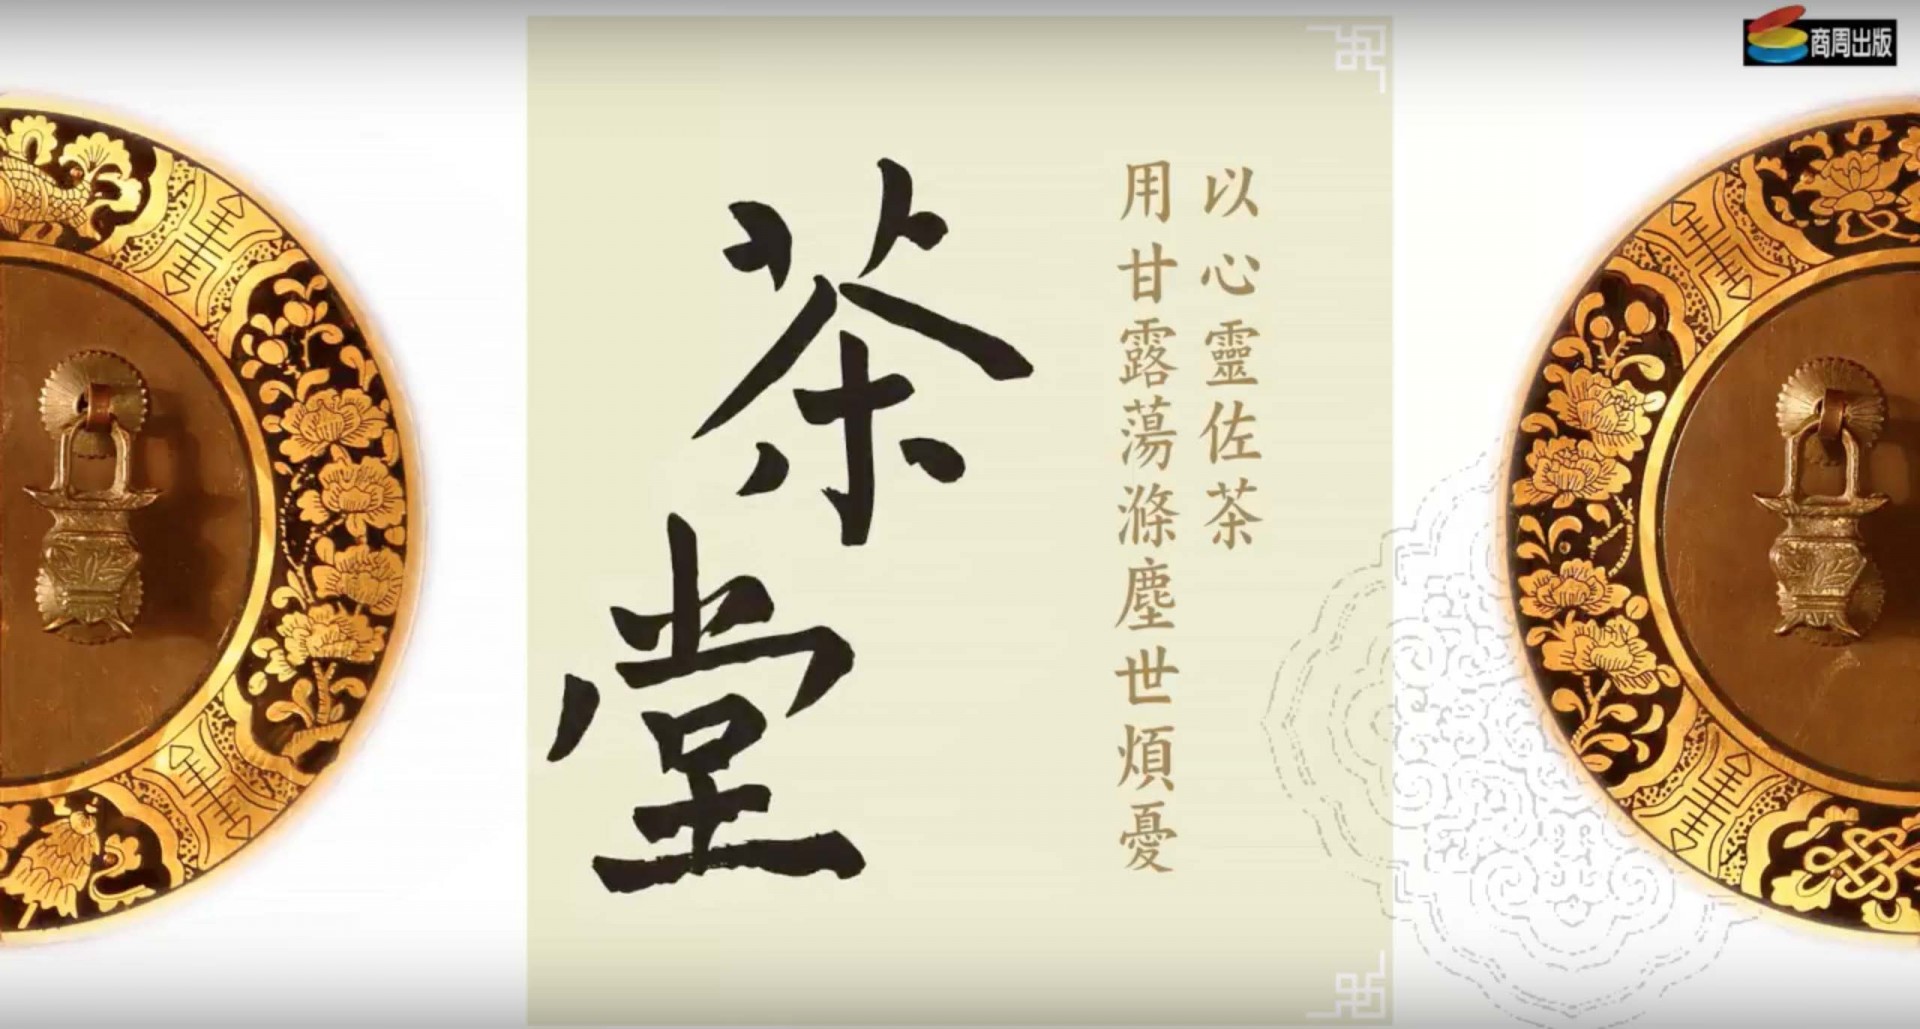 商周出版
以心靈佐茶
用甘露蕩滌塵世煩憂
茶堂